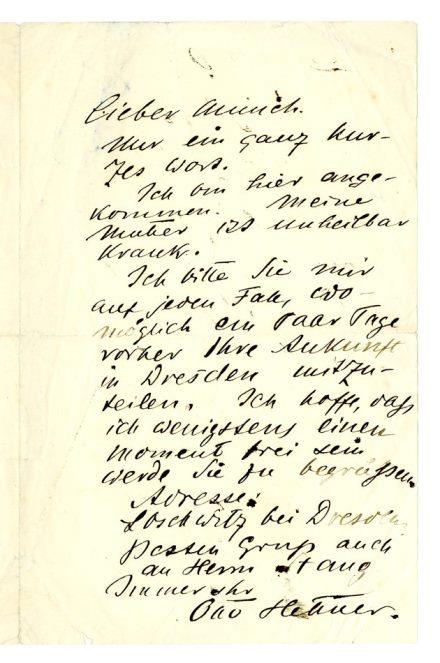 Lieber Munch.
Nur ein ganz kur-
zes Wort.
Ich bin hier ange-
kommen. Meine
Mutter ist unheilbar
krank.
Ich bitte Sie mir
auf jeden Fall, wo-
möglich ein Paar Tage
vorher Ihre Ankunft
in Dresden mitzu-
teilen. Ich hoffe, dass
ich wenigstens einen
Moment frei sein
werde Sie zu begrüssen
Adresse:
Loschwitz bei Dresden
Besten Gruss auch
an Herrn
Immer Ihr
Otto Hettner.